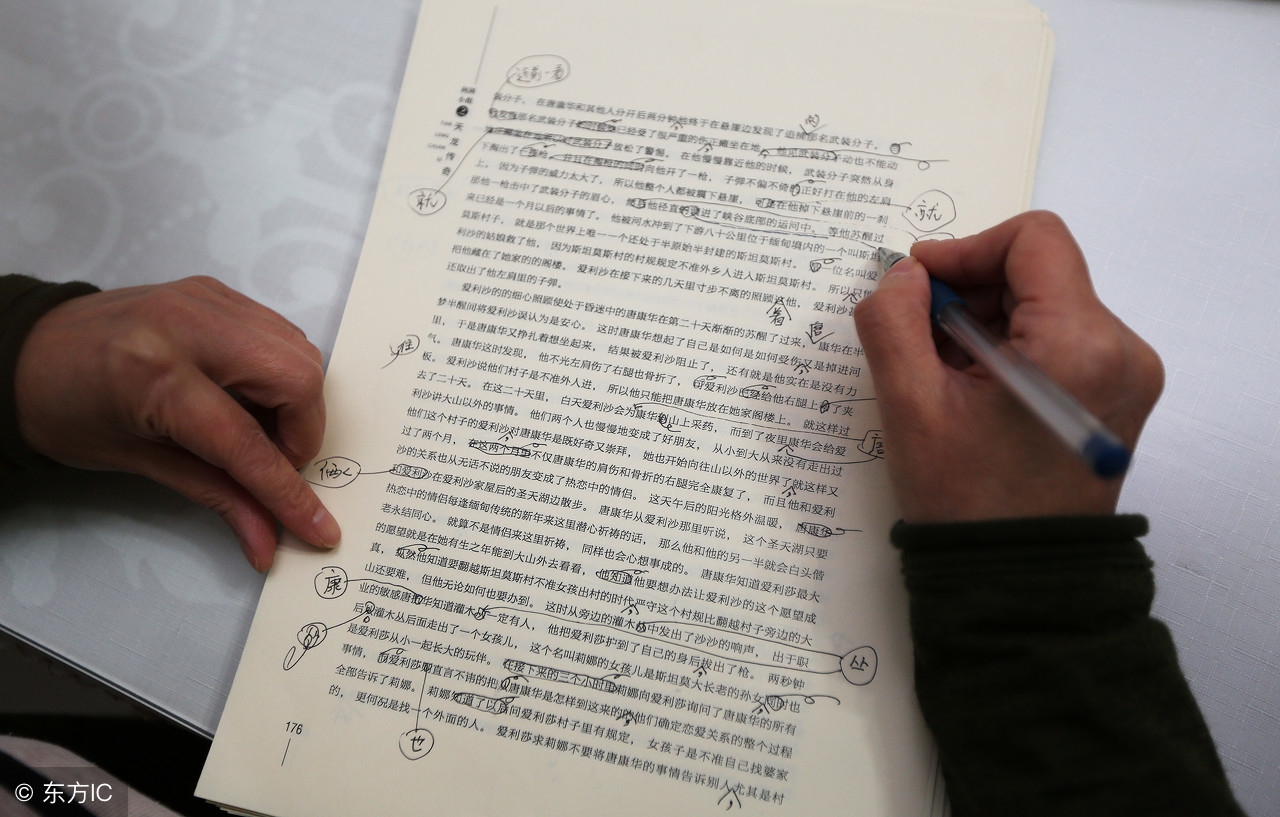 这前一看
天龙传奇
装分子。 在唐康华和其他人分开后两分钟他终于在悬崖边发现了追捕那名武装分子。
那名武装分子 已经受了很严重的伤正藏坐在地, 他见武装分子动也不能动
放松了警惕。 在他慢慢靠近他的时候, 武装分子突然从身
下掏出了一 枪, 并且在 向他开了一枪, 子弹不偏不倚的正好打在他的左肩
上。 因为子弹的威力太大了, 所以他整个人都被震下悬崖, 在他掉下悬崖前的一刹
那他一枪击中了武装分子的眉心, 然后他径直的 进了峡谷底部的运问中。 等他苏醒过
来已经是一个月以后的事情了。 他被河水冲到了下游八十公里位于缅甸境内的一个叫斯坦
莫斯村子, 就是那个世界上唯一一个还处于半原始半封建的斯坦莫斯村。 一位名叫爱
利沙的姑娘救了他, 因为斯坦莫斯村的村规规定不准外乡人进入斯坦莫斯村。 所以只
把他藏在了她家的的阁楼。 爱利沙在接下来的几天里寸步不离的照顾这他, 爱利沙
还取出了他左肩里的子弹。
爱利沙的的细心照顾使处于昏迷中的唐康华在第二十天渐渐的苏醒了过来, 康华在半
梦半醒间将爱利沙误认为是安心。 这时唐康华想起了自己是如何是如何受伤又是掉进河
里, 于是唐康华又挣扎着想坐起来, 结果被爱利沙阻止了, 还有就是他实在是没有力
气。 唐康华这时发现, 他不光左肩伤了右腿也骨折了, 可爱利沙已经给他右腿上 了夹
板。 爱利沙说他们村子是不准外人进, 所以他只能把唐康华放在她家阁楼上。 就这样过
去了二十天。 在这二十天里, 白天爱利沙会为康华到山上采药, 而到了夜里康华会给爱
利沙讲大山以外的事情。 他们两个人也慢慢地变成了好朋友, 从小到大从来没有走出过
他们这个村子的爱利沙对唐康华是既好奇又崇拜, 她也开始向往山以外的世界了就这样又
过了两个月, 在这两个月里不仅唐康华的肩伤和骨折的右腿完全康复了, 而且他和爱利
沙的关系也从无话不说的朋友变成了热恋中的情侣。 这天午后的阳光格外温暖, 唐康华
和爱利沙在爱利沙家屋后的圣天湖边散步。 唐康华从爱利沙那里听说, 这个圣天湖只要
热恋中的情侣每逢缅甸传统的新年来这里潜心祈祷的话, 那么他和他的另一半就会白头偕
老永结同心。 就算不是情侣来这里祈祷, 同样也会心想事成的。 唐康华知道爱利莎最大
的愿望就是在她有生之年能到大山外去看看, 他知道他要想办法让爱利沙的这个愿望成
真, 虽然他知道要翻越斯坦莫斯村不准女孩出村的时代严守这个村规比翻越村子旁边的大
山还要难, 但他无论如何也要办到。 这时从旁边的灌木 中发出了沙沙的响声, 出于职
业的敏感唐 华知道灌木 一定有人, 他把爱利莎护到了自己的身后拔出了枪。 两秒钟
后 灌木丛后面走出了一个女孩儿, 这个名叫莉娜的女孩儿是斯坦莫大长老的孙女 时也
是爱利莎从小一起长大的玩伴。 在接下来的三个小时里莉娜向爱利莎询问了唐康华的所有
事情, 而爱利莎 直言不讳的把 唐康华是怎样到这来的 他们确定恋爱关系的整个过程
全部告诉了莉娜。 莉娜知道了以后问爱利莎村子里有规定, 女孩子是不准自己找婆家
的, 更何况是找一个外面的人。 爱利莎求莉娜不要将唐康华的事情告诉别人尤其是村
176
就
就
着
唐
唐
他们
康
丛
也
© 东方IC